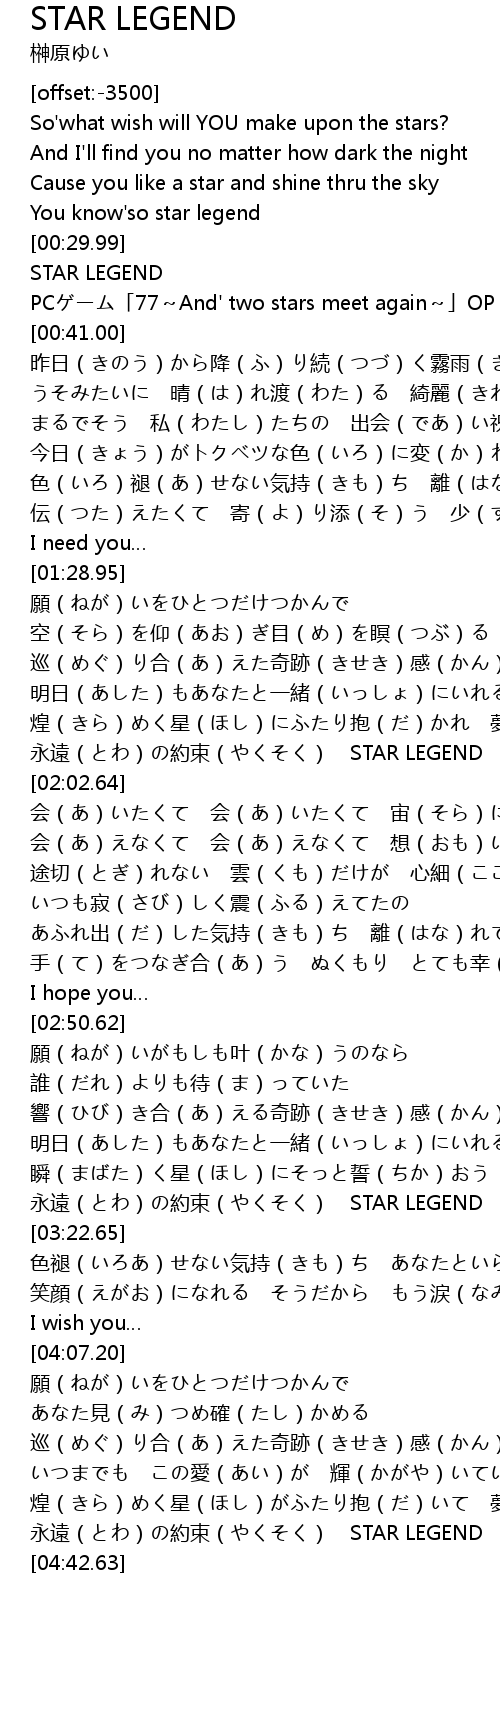 STAR LEGEND
榊原ゆい
[offset:-3500]
So'what wish will YOU make upon the stars?
And I'll find you no matter how dark the night
Cause you like a star and shine thru the sky
You know'so star legend
[00:29.99]
STAR LEGEND
PCゲーム「77～And' two stars meet again～」OP
[00:41.00]
昨日（きのう）から降（ふ）り続（つづ）く霧雨（
うそみたいに　晴（は）れ渡（わた）る　綺麗（きれ
まるでそう　私（わたし）たちの　出会（であ）い祝
今日（きょう）がトクベツな色（いろ）に変（か）わ
色（いろ）褪（あ）せない気持（きも）ち　離（はな
伝（つた）えたくて　寄（よ）り添（そ）う　少（す
I need you...
[01:28.95]
願（ねが）いをひとつだけつかんで
空（そら）を仰（あお）ぎ目（め）を瞑（つぶ）る
巡（めぐ）り合（あ）えた奇跡（きせき）感（かん）
明日（あした）もあなたと一緒（いっしょ）にいれる
煌（きら）めく星（ほし）にふたり抱（だ）かれ　夢
永遠（とわ）の約束（やくそく）　STAR LEGEND
[02:02.64]
会（あ）いたくて　会（あ）いたくて　宙（そら）に
会（あ）えなくて　会（あ）えなくて　想（おも）い
途切（とぎ）れない　雲（くも）だけが　心細（ここ
いつも寂（さび）しく震（ふる）えてたの
あふれ出（だ）した気持（きも）ち　離（はな）れて
手（て）をつなぎ合（あ）う　ぬくもり　とても幸（
I hope you...
[02:50.62]
願（ねが）いがもしも叶（かな）うのなら
誰（だれ）よりも待（ま）っていた
響（ひび）き合（あ）える奇跡（きせき）感（かん）
明日（あした）もあなたと一緒（いっしょ）にいれる
瞬（まばた）く星（ほし）にそっと誓（ちか）おう
永遠（とわ）の約束（やくそく）　STAR LEGEND
[03:22.65]
色褪（いろあ）せない気持（きも）ち　あなたといら
笑顔（えがお）になれる　そうだから　もう涙（なみ
I wish you...
[04:07.20]
願（ねが）いをひとつだけつかんで
あなた見（み）つめ確（たし）かめる
巡（めぐ）り合（あ）えた奇跡（きせき）感（かん）
いつまでも　この愛（あい）が　輝（かがや）いてい
煌（きら）めく星（ほし）がふたり抱（だ）いて　夢
永遠（とわ）の約束（やくそく）　STAR LEGEND
[04:42.63]